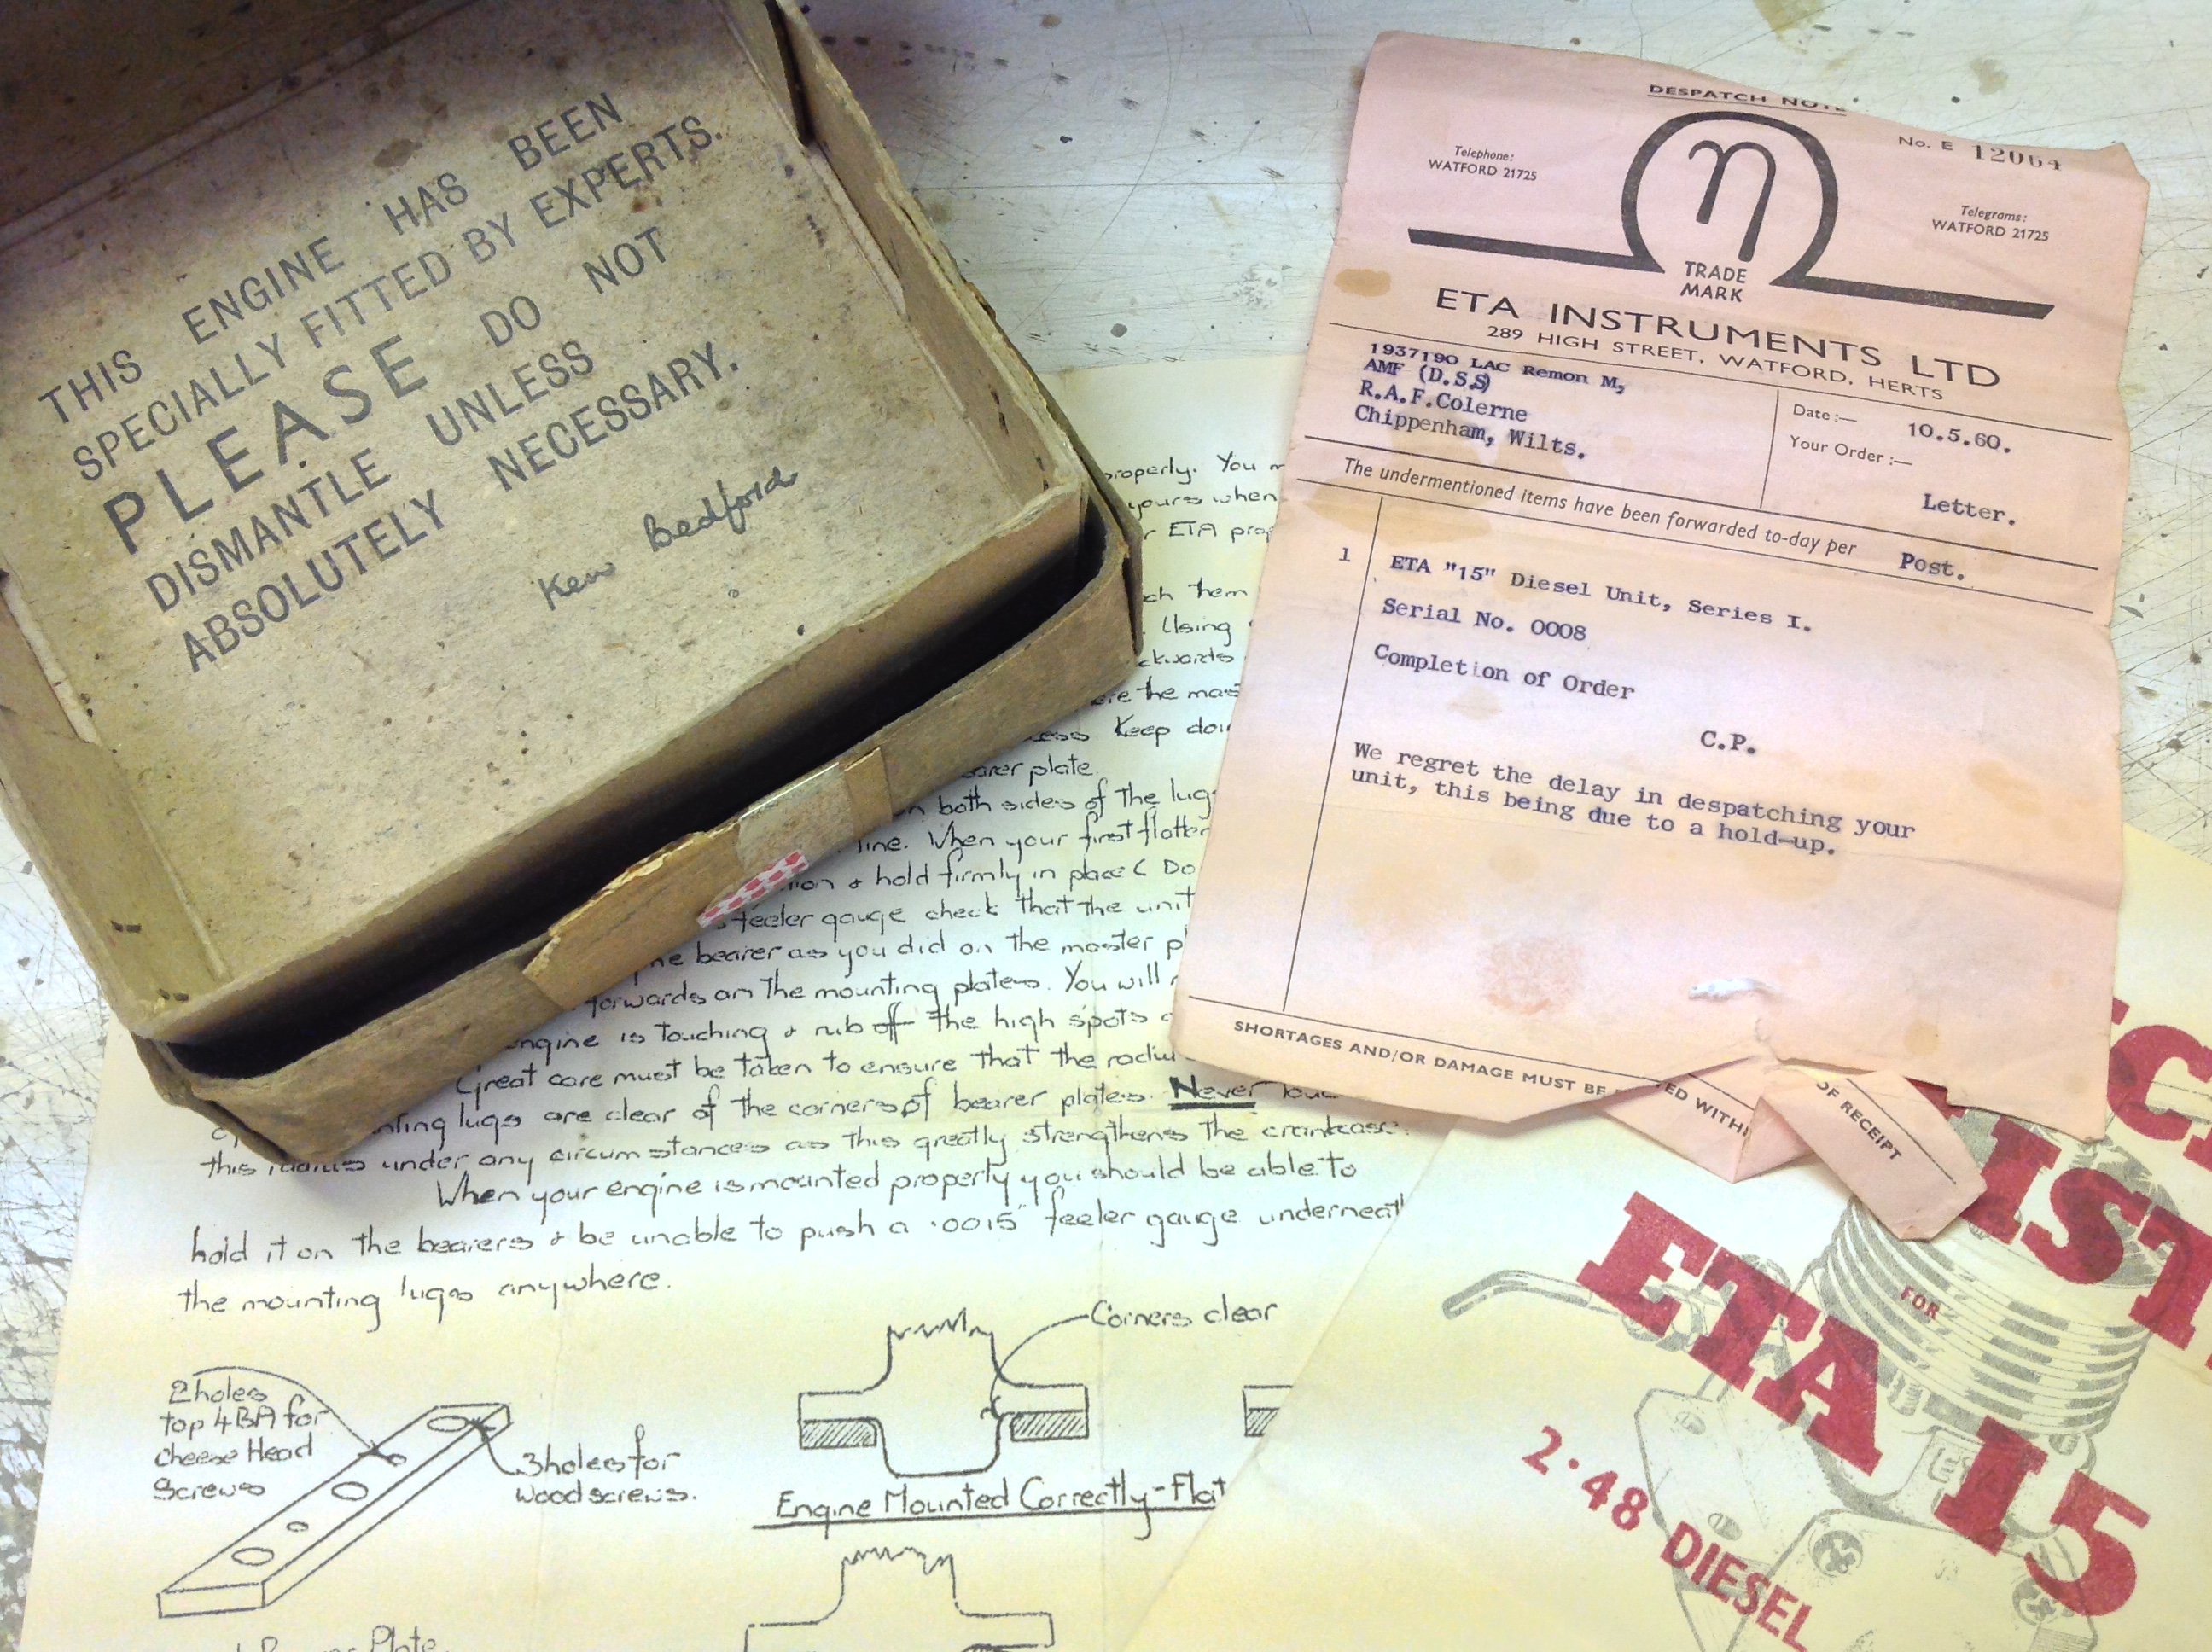 THIS ENGINE HAS BEEN
SPECIALLY FITTED BY EXPERTS.
PLEASE DO NOT
DISMANTLE UNLESS
ABSOLUTELY NECESSARY.
Ken Bedford
DESPATCH NOTE
No. E 12064
Telephone:
WATFORD 21725
η
Telegrams:
WATFORD 21725
TRADE
MARK
ETA INSTRUMENTS LTD
289 HIGH STREET, WATFORD, HERTS
1937190 LAC Remon M,
AMF (D.S.S)
R.A.F.Colerne
Chippenham, Wilts.
Date:— 10.5.60.
Your Order:—
Letter.
The undermentioned items have been forwarded to-day per Post.
1 ETA "15" Diesel Unit, Series I.
Serial No. 0008
Completion of Order
C.P.
We regret the delay in despatching your
unit, this being due to a hold-up.
SHORTAGES AND/OR DAMAGE MUST BE
OF RECEIPT
properly. You
yours when
ETA
them
Using
the
Keep
plate
both sides of the
line. When your first
& hold firmly in place ( Do
feeler gauge check that the unit
bearer as you did on the master
forwards on the mounting plates. You will
engine is touching & rub off the high spots
Great care must be taken to ensure that the
lugs are clear of the corners of bearer plates. Never
this radius under any circumstances as this greatly strengthens the crankcase.
When your engine is mounted properly you should be able to
hold it on the bearers & be unable to push a .0015" feeler gauge underneath
the mounting lugs anywhere.
2 holes
tap 4BA for
Cheese Head
Screws
3 holes for
woodscrews.
Corners clear
Engine Mounted Correctly-Flat
Plate.
FOR
ETA 15
2·48 DIESEL